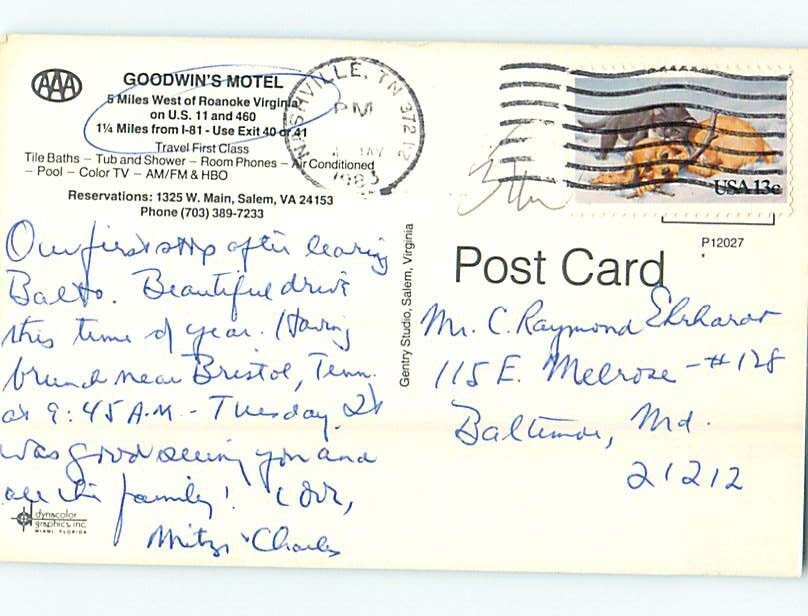 AAA
GOODWIN'S MOTEL
5 Miles West of Roanoke Virginia
on U.S. 11 and 460
1¼ Miles from I-81 - Use Exit 40 or 41
Travel First Class
Tile Baths – Tub and Shower – Room Phones – Air Conditioned
– Pool – Color TV – AM/FM & HBO
Reservations: 1325 W. Main, Salem, VA 24153
Phone (703) 389-7233
Our first stop after leaving
Balto. Beautiful drive
this time of year. Having
brunch near Bristol, Tenn.
at 9:45 A.M. - Tuesday. It
was good seeing you and
all the family! Love,
Mitzi & Charles
dynacolor
graphics inc.
MIAMI, FLORIDA
Gentry Studio, Salem, Virginia
NASHVILLE, TN 372
PM
1983
USA 13c
P12027
Post Card
Mr. C. Raymond Ehrhardt
115 E. Melrose - #128
Baltimore, Md.
21212